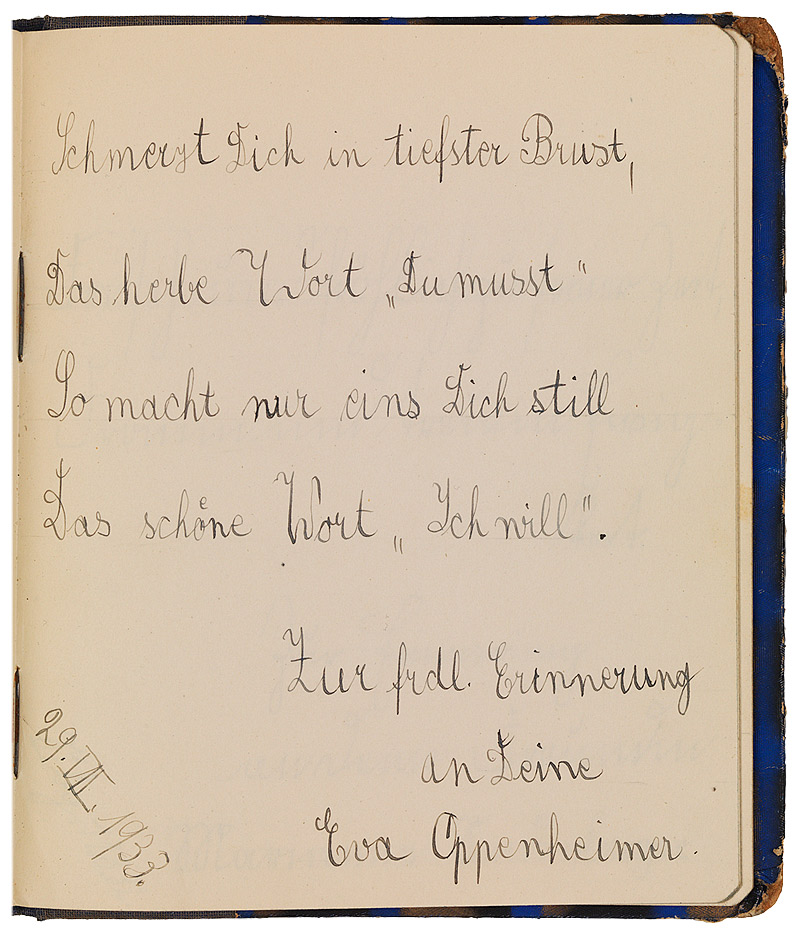 Schmerzt Dich in tiefster Brust,
Das herbe Wort „Du musst“
So macht nur eins Dich still
Das schöne Wort „Ich will“.
Zur frdl. Erinnerung
an Deine
Eva Oppenheimer.
29. VII. 1933.